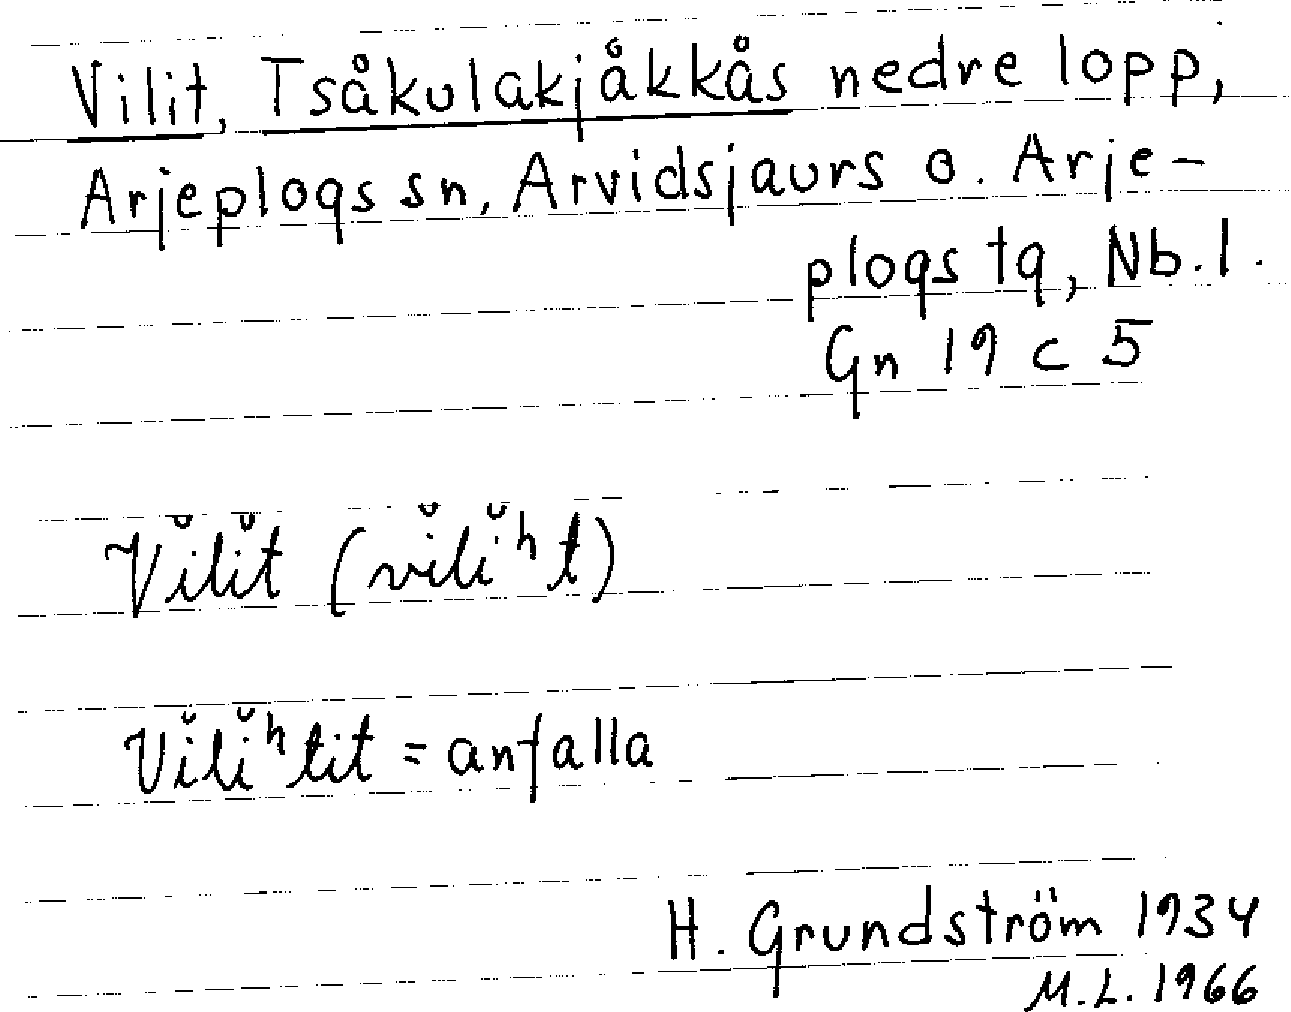 Vilit, Tsåkulakjåkkås nedre lopp,
Arjeplogs sn, Arvidsjaurs o. Arje-
plogs tg, Nb.l.
Gn 19 c 5
Vĭlĭt (vĭlĭʰt)
Vĭlĭʰtit = anfalla
H. Grundström 1934
M.L. 1966